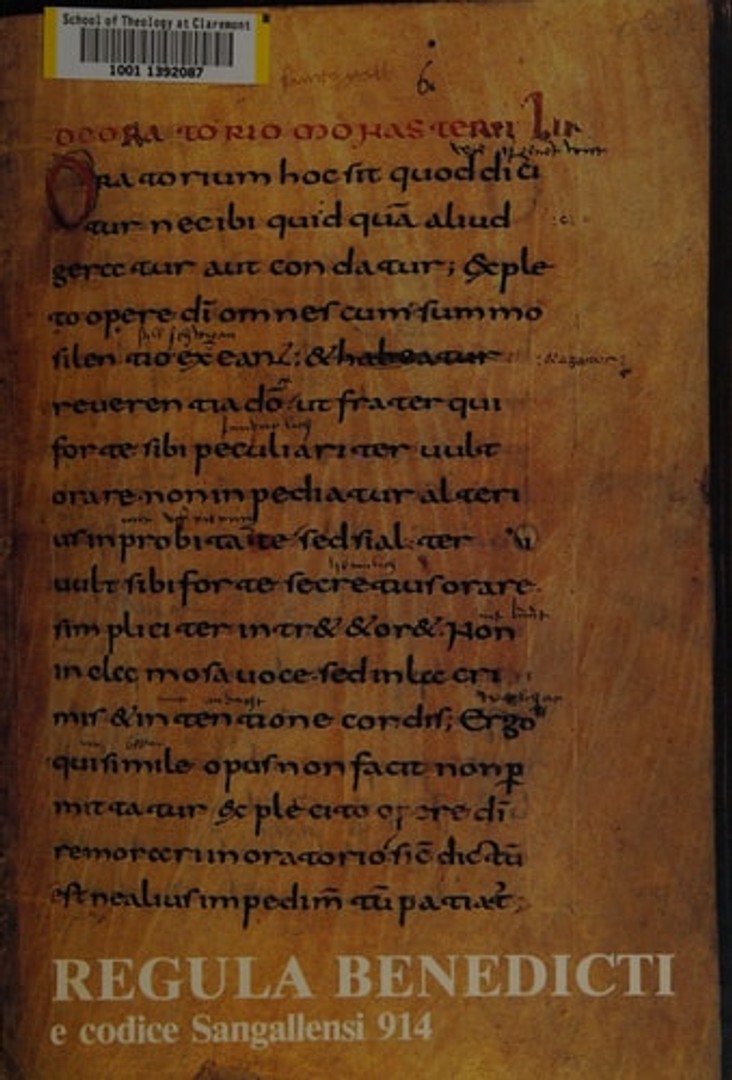 School of Theology at Claremont
1001 1392087
6.
DEORATORIO MONASTERII LII
Oratorium hoc sit quod dici
tur nec ibi quid quā aliud
geratur aut condatur; & ple
to opere dī omnes cum summo
silentio exeant; & habeatur
: & agatur:
reverentia dō ut frater qui
forte sibi peculiariter uult
orare non inpediatur alteri
us inprobitate sed si alter
uult sibi forte secretius orare
simpliciter intr& & or&. Non
in clamosa uoce sed in lacri
mis & in tentione cordis; Ergo
qui simile opus non facit non p̄
mittatur explecito opere dī
remorari in oratorio sic̄ dictū
est ne alius impedim̄tū patiat̄;
REGULA BENEDICTI
e codice Sangallensi 914